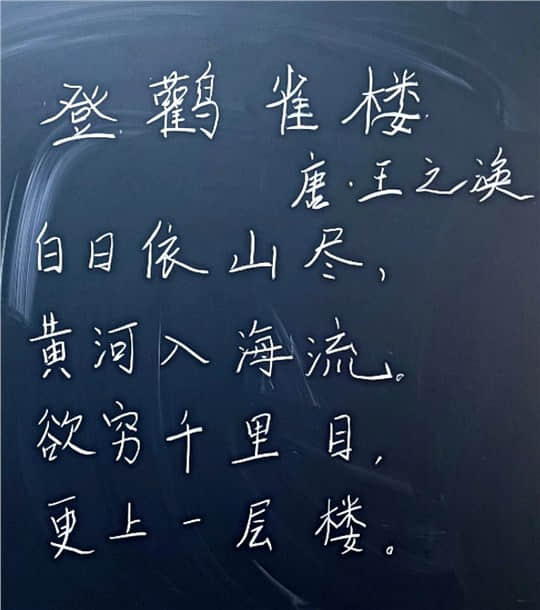 登鸛雀楼
唐·王之涣
白日依山尽,
黄河入海流。
欲穷千里目,
更上一层楼。